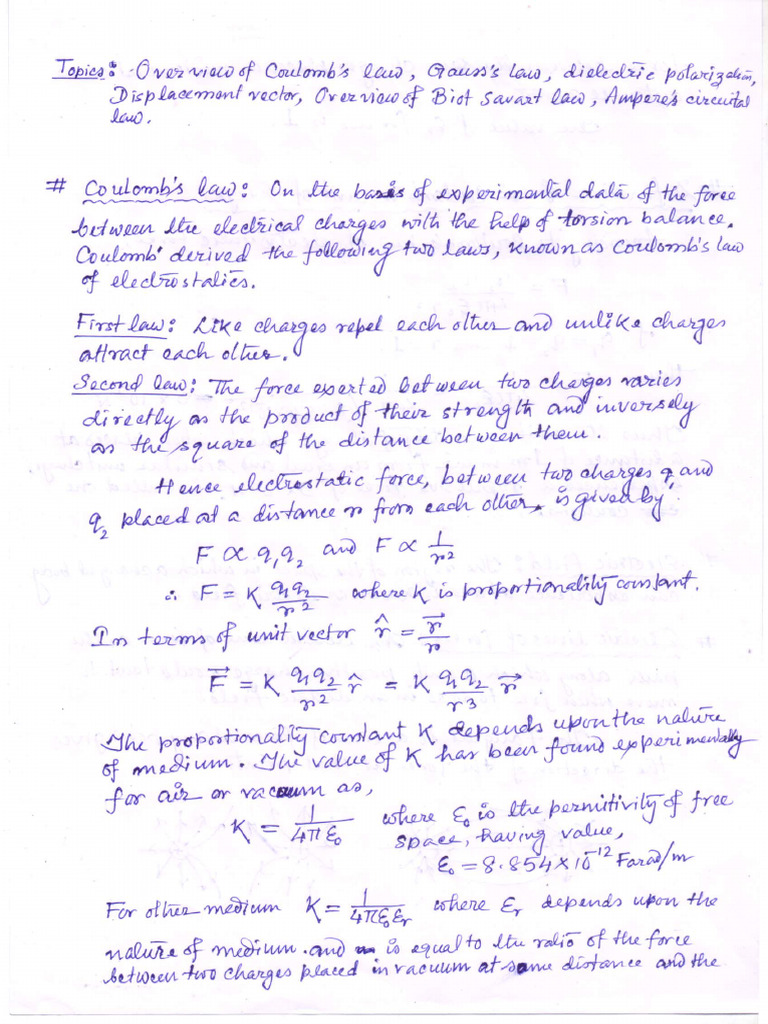 Topics: Overview of Coulomb's law, Gauss's law, dielectric polarization,
Displacement vector, Overview of Biot Savart law, Ampere's circuital
law.
# Coulomb's law: On the basis of experimental data of the force
between the electrical charges with the help of torsion balance.
Coulomb derived the following two laws, known as Coulomb's law
of electrostatics.
First law: Like charges repel each other and unlike charges
attract each other.
Second law: The force exerted between two charges varies
directly as the product of their strength and inversely
as the square of the distance between them.
Hence electrostatic force, between two charges q₁ and
q₂ placed at a distance r from each other, is given by
F ∝ q₁q₂ and F ∝ 1/r²
∴ F = K q₁q₂/r² where K is proportionality constant.
In terms of unit vector r̂ = r⃗/r
F⃗ = K q₁q₂/r² r̂ = K q₁q₂/r³ r⃗
The proportionality constant K depends upon the nature
of medium. The value of K has been found experimentally
for air or vacuum as,
K = 1/4πε₀ where ε₀ is the permitivity of free
space, having value,
ε₀ = 8.854×10⁻¹² Farad/m
For other medium K = 1/4πε₀εᵣ where εᵣ depends upon the
nature of medium. and is equal to the ratio of the force
between two charges placed in vacuum at same distance and the